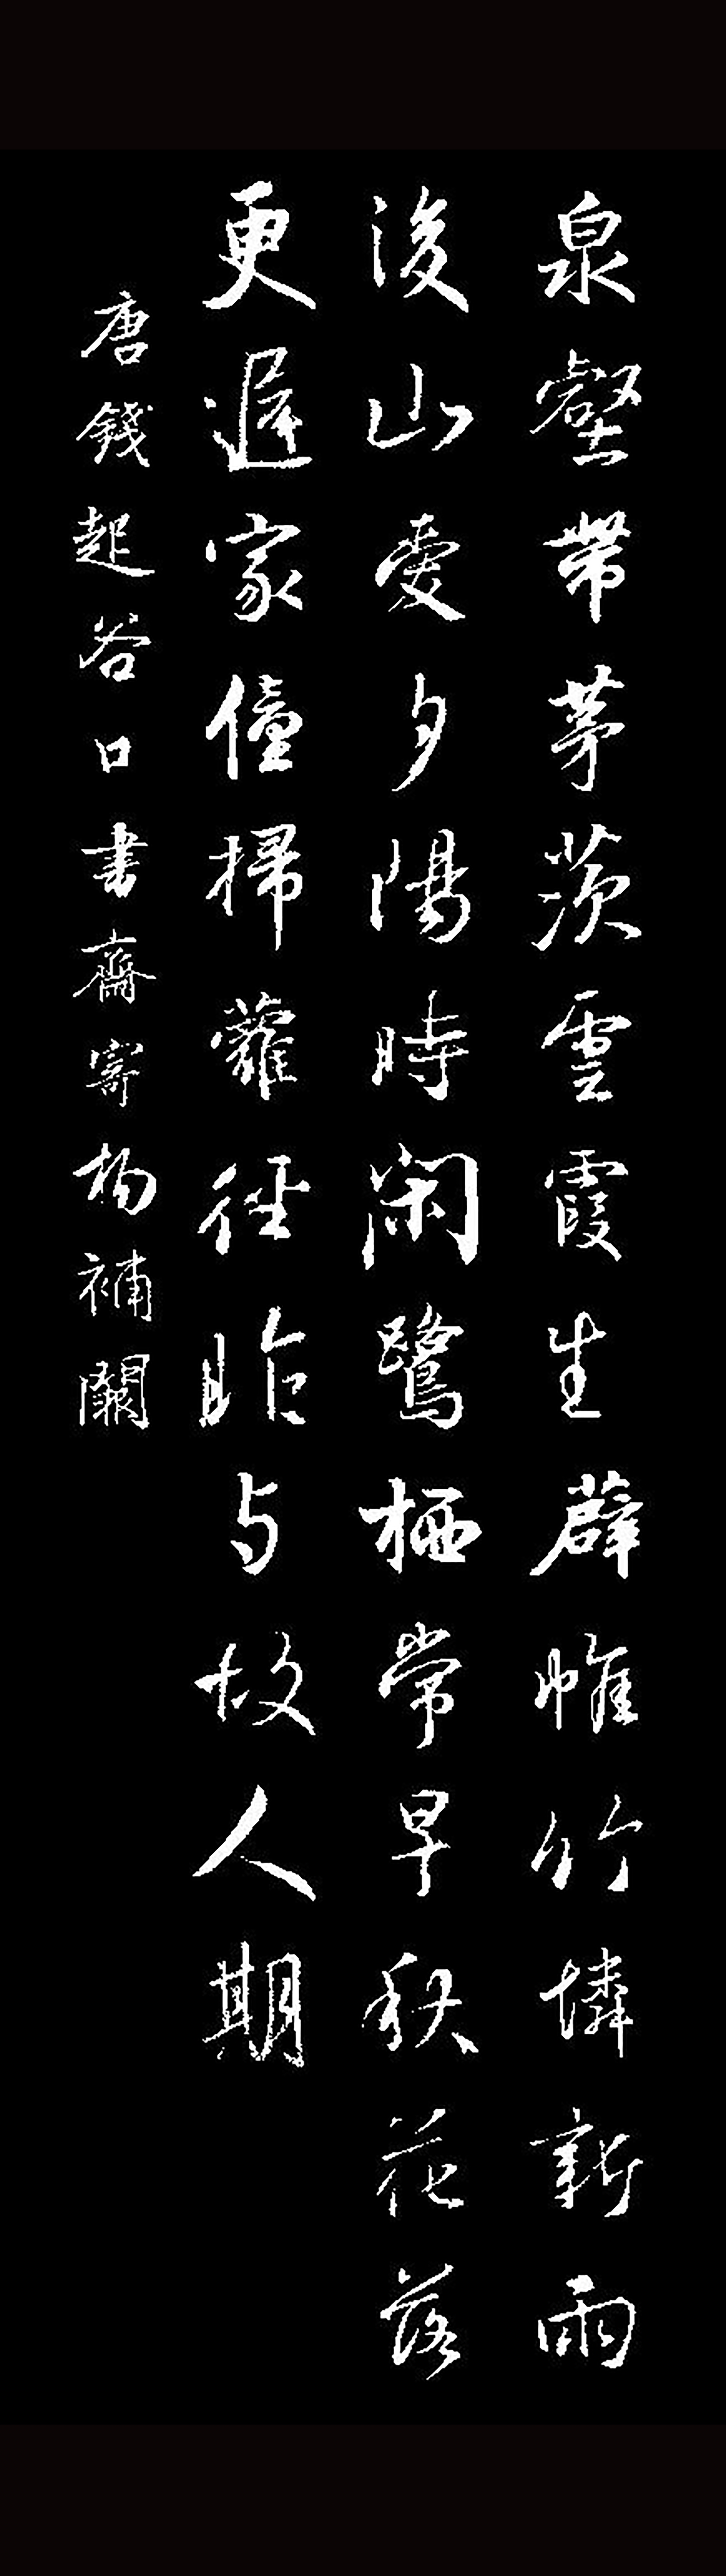 泉壑帶茅茨雲霞生薜帷竹憐新雨
後山愛夕陽時閑鷺栖常早秋花落
更遲家僮掃蘿徑昨与故人期
唐錢起谷口書齋寄楊補闕